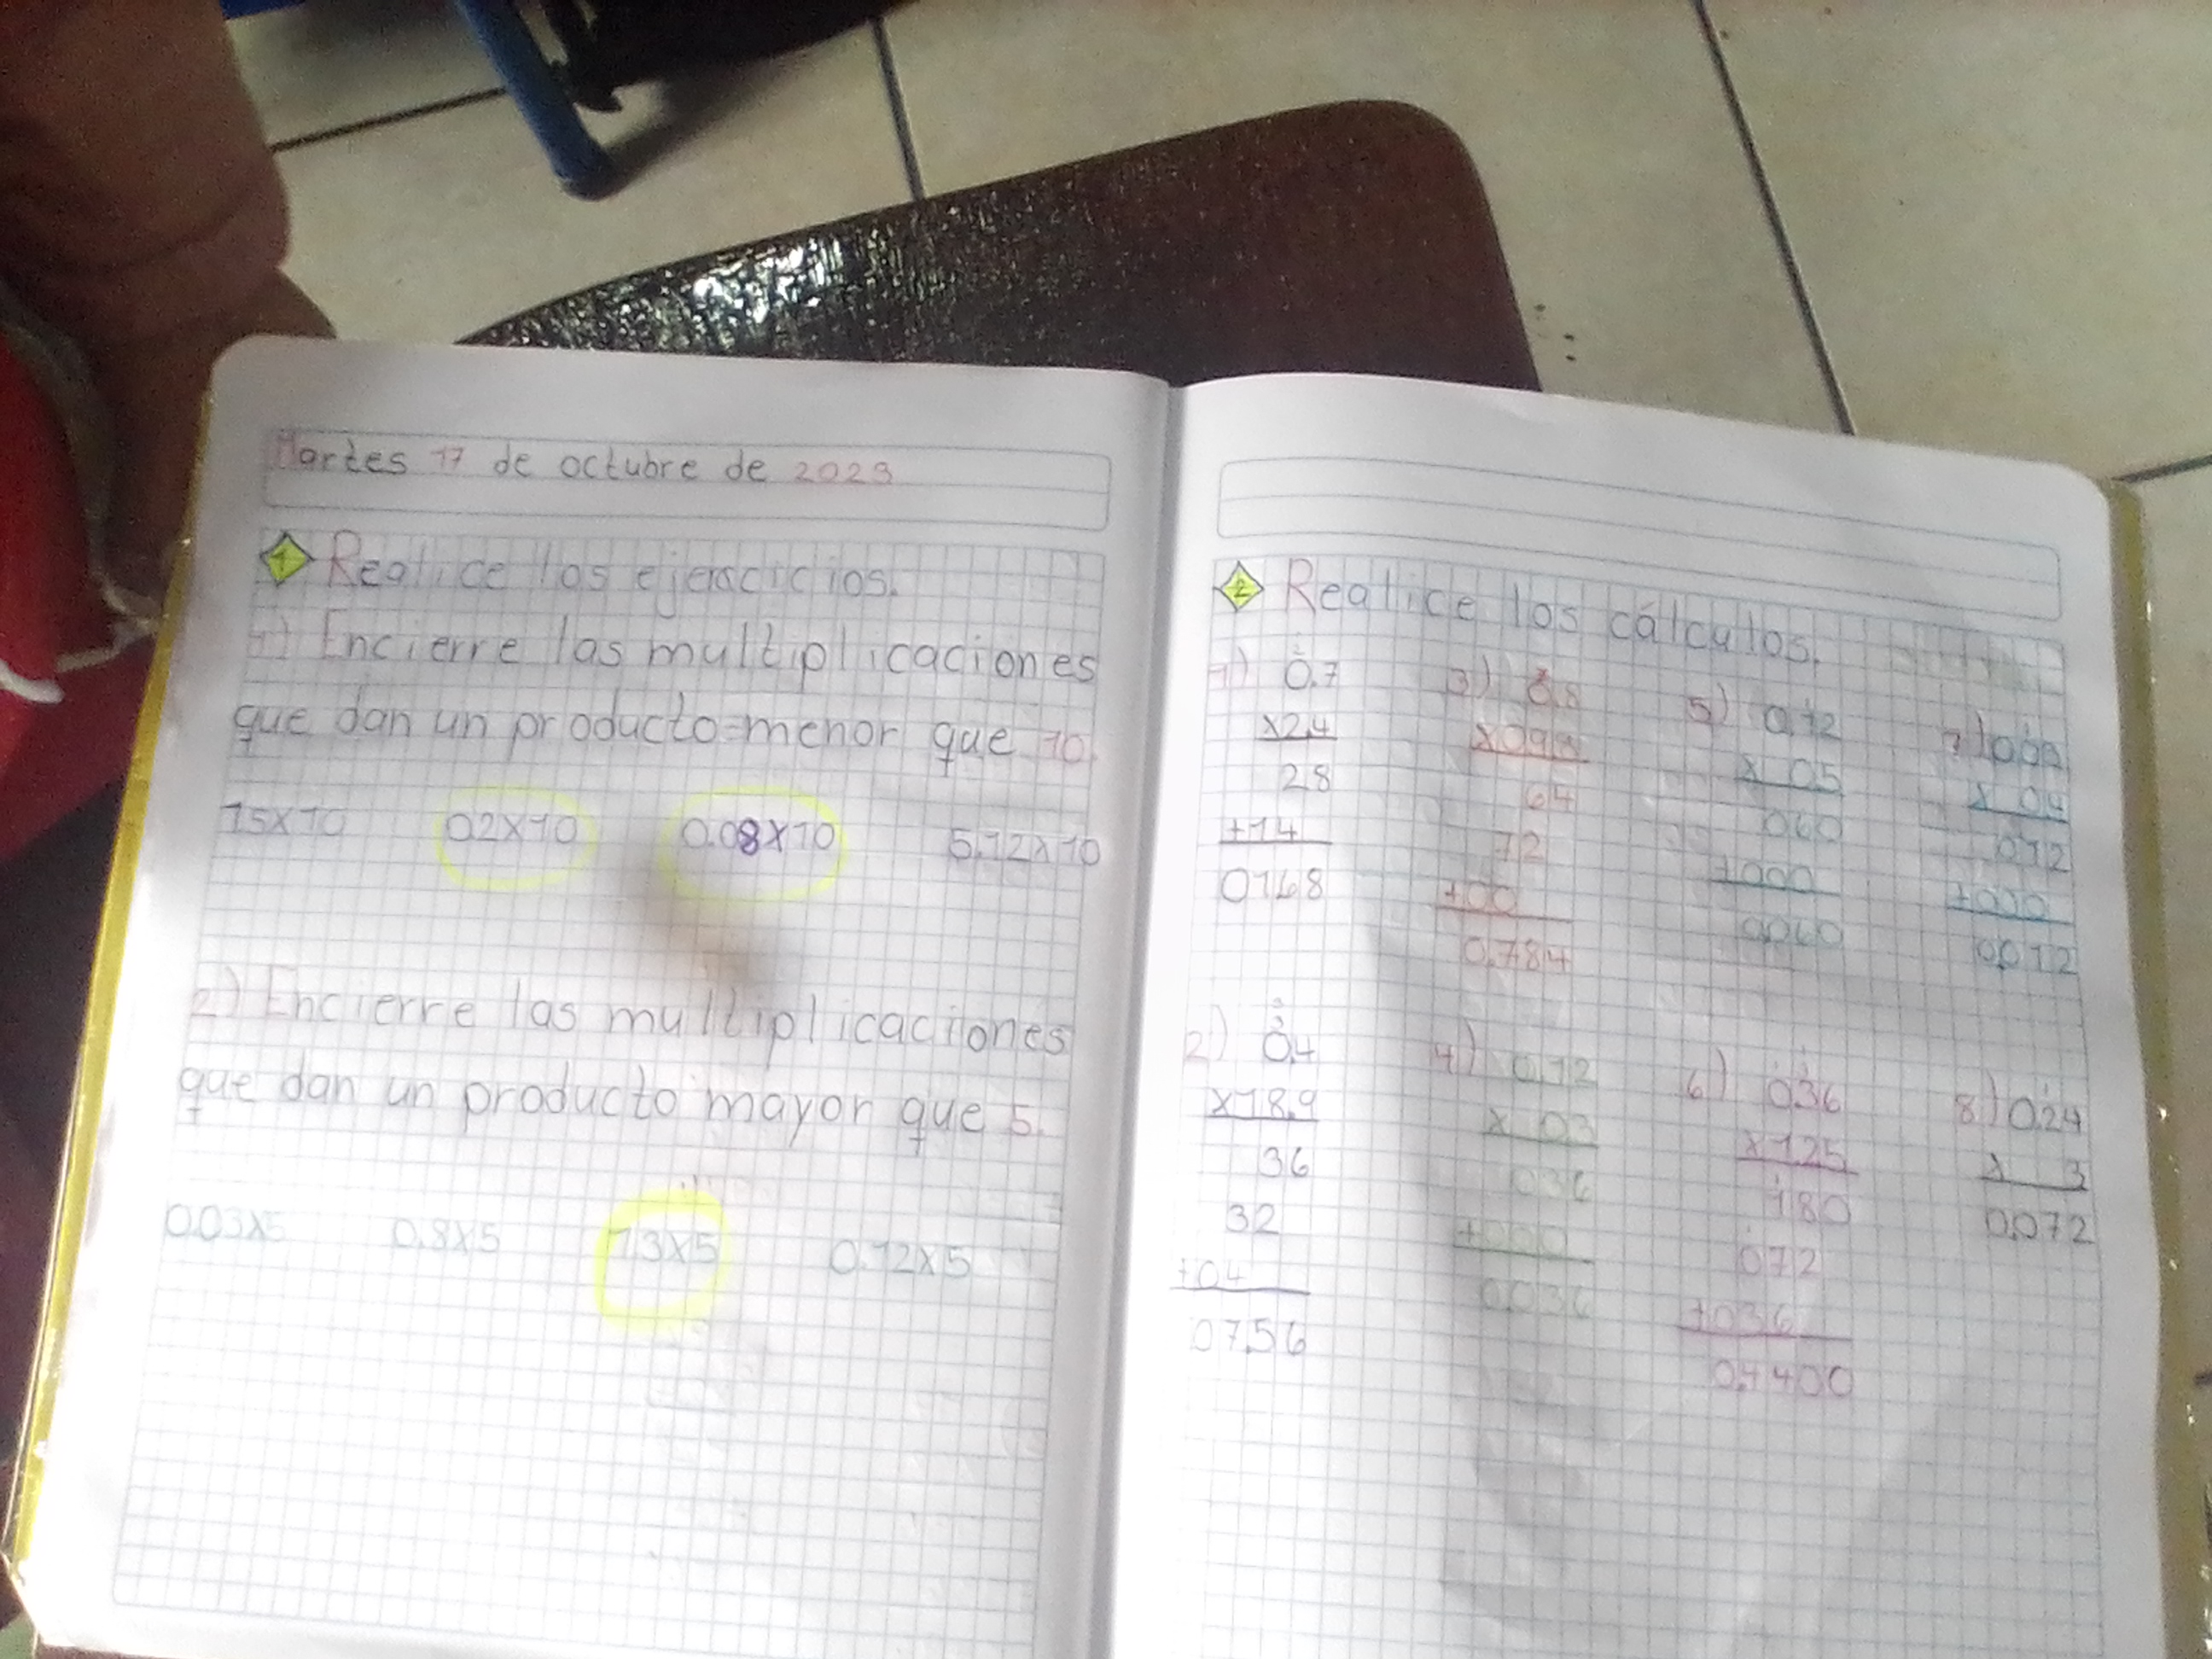 Martes 17 de octubre de 2023
1 Realice los ejercicios.
1) Encierre las multiplicaciones
que dan un producto menor que 10.
1.5x10 0.2x10 0.08x10 5.12x10
2) Encierre las multiplicaciones
que dan un producto mayor que 5.
0.03x5 0.8x5 1.3x5 0.12x5
2 Realice los cálculos.
1) 0.7
x2.4
28
+14
01.68
3) 0.8
64
72
+00
0.784
5) 0.12
x 0.5
060
+000
0.060
x 0.4
012
+000
0.012
2) 0.4
x18.9
36
32
+04
07.56
4) 0.12
x 0.3
036
+000
0.036
6) 0.36
x1.25
180
072
+036
8) 0.24
x 3
0.072